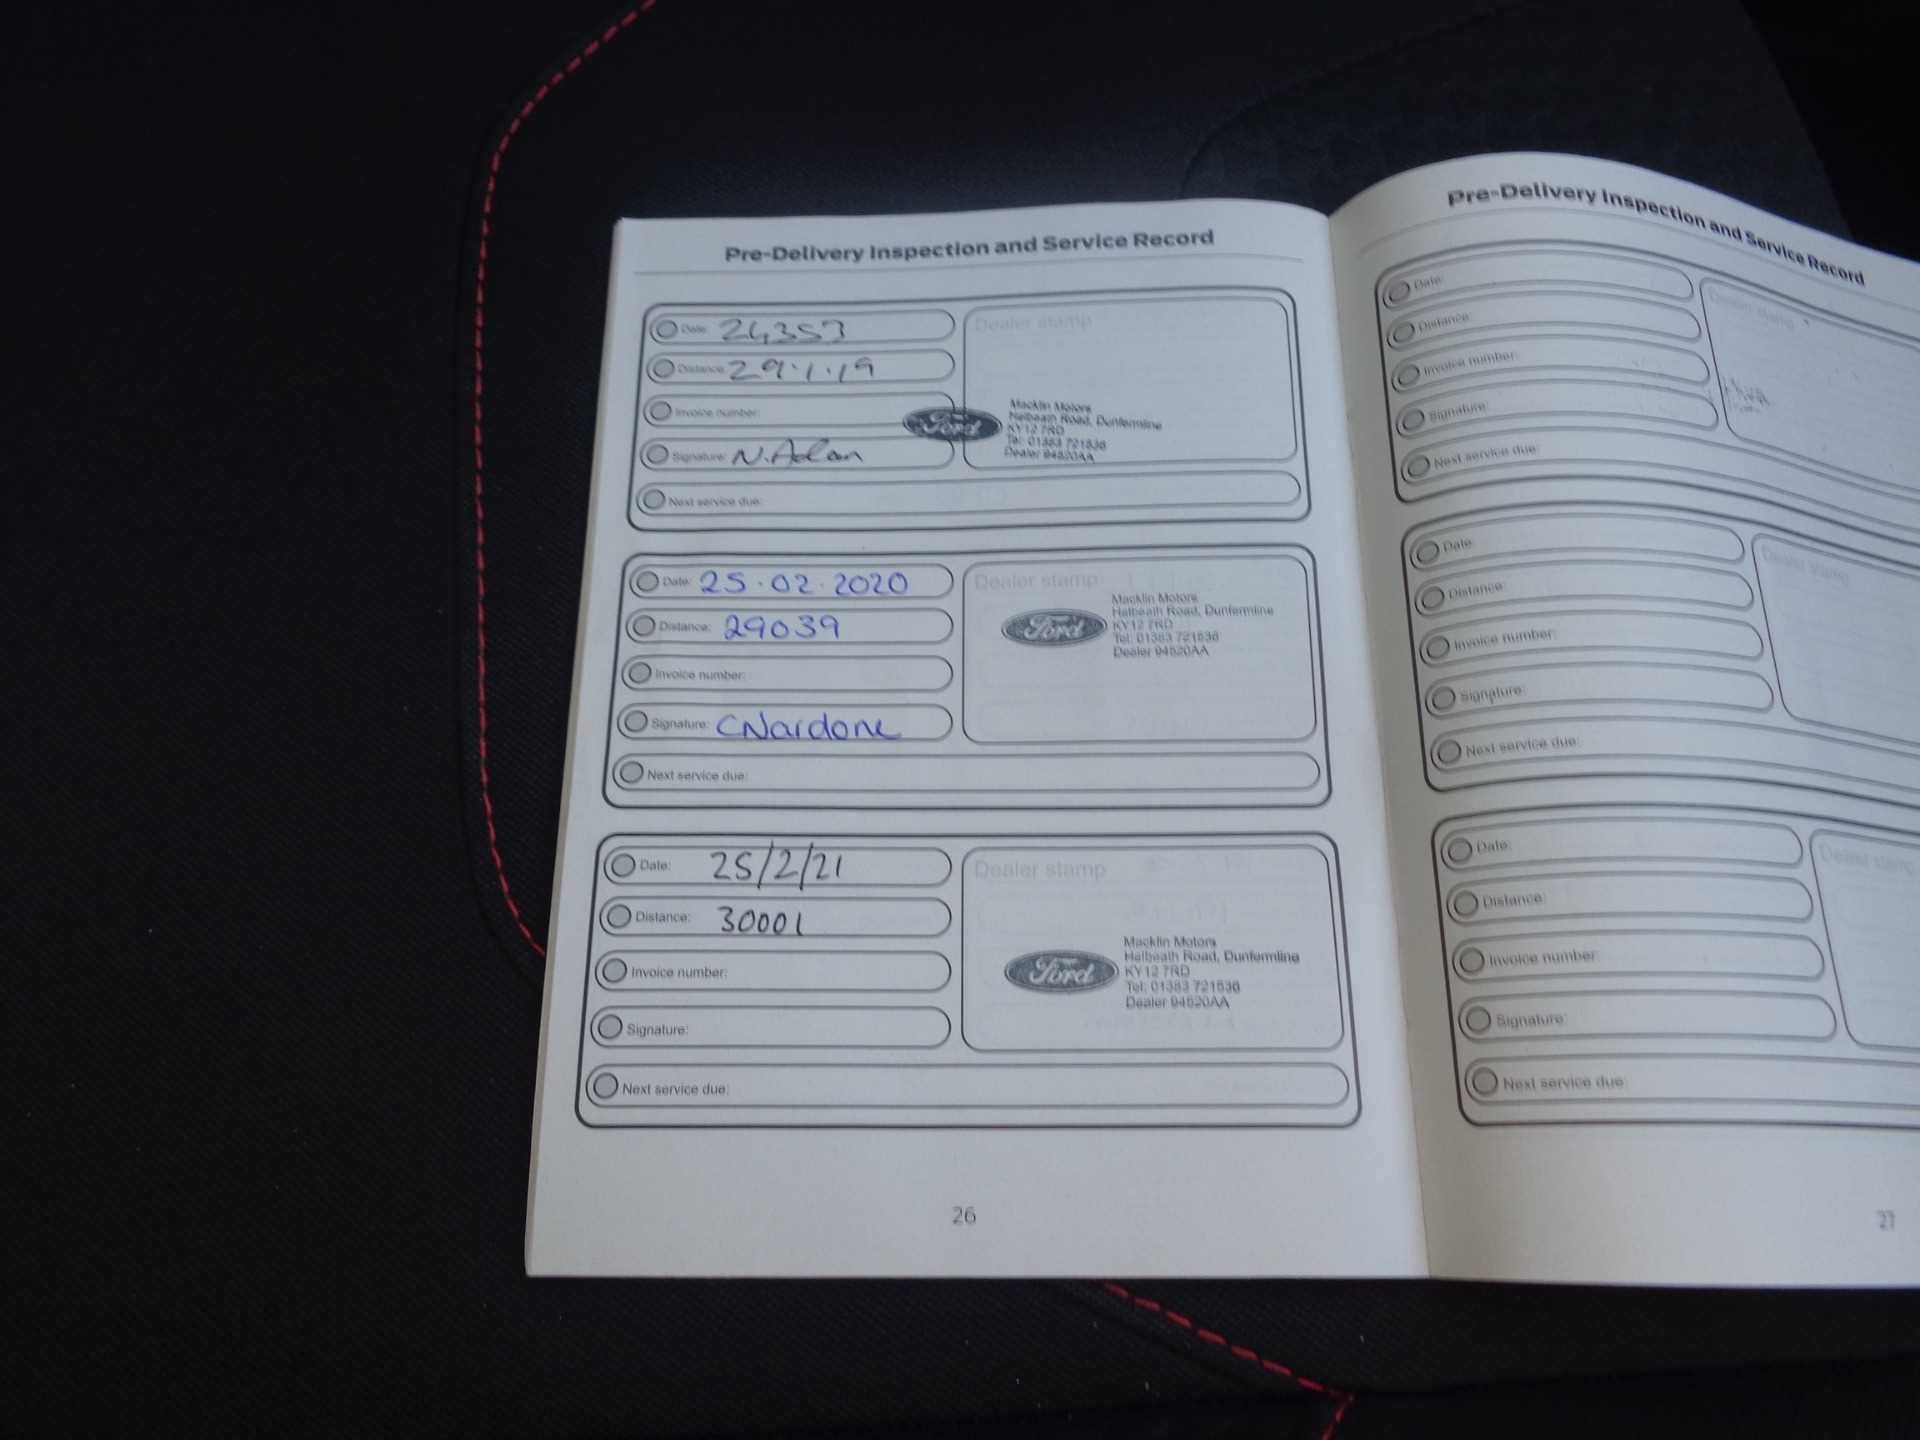 Pre-Delivery Inspection and Service Record
Date: 24353
Distance: 29.1.19
Invoice number:
Signature: N.Adam
Next service due:
Dealer stamp
Ford
Macklin Motors
Halbeath Road, Dunfermline
KY12 7RD
Tel: 01383 721536
Dealer 94520AA
Date: 25.02.2020
Distance: 29039
Invoice number:
Signature: CNardone
Next service due:
Dealer stamp
Ford
Macklin Motors
Halbeath Road, Dunfermline
KY12 7RD
Tel: 01383 721536
Dealer 94520AA
Date: 25/2/21
Distance: 30001
Invoice number:
Signature:
Next service due:
Dealer stamp
Ford
Macklin Motors
Halbeath Road, Dunfermline
KY12 7RD
Tel: 01383 721536
Dealer 94520AA
26
Pre-Delivery Inspection and Service Record
Date:
Distance:
Invoice number:
Signature:
Next service due:
Dealer stamp
Date:
Distance:
Invoice number:
Signature:
Next service due:
Dealer stamp
Date:
Distance:
Invoice number:
Signature:
Next service due:
Dealer stamp
27